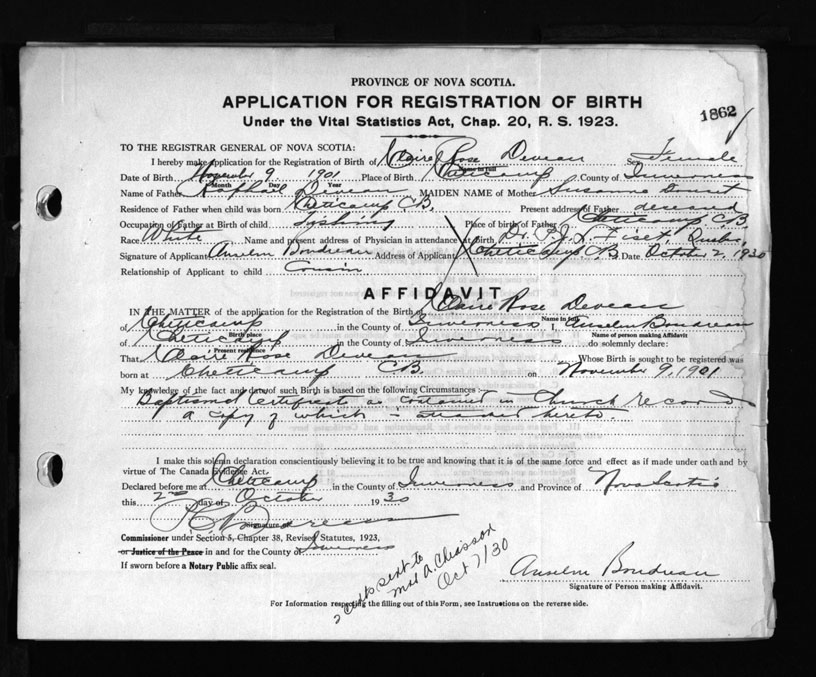 PROVINCE OF NOVA SCOTIA.
APPLICATION FOR REGISTRATION OF BIRTH
Under the Vital Statistics Act, Chap. 20, R. S. 1923.
1862
TO THE REGISTRAR GENERAL OF NOVA SCOTIA:
I hereby make application for the Registration of Birth of Claire Rose Deveau Sex Female
Name in full
Date of Birth November 9 1901 Place of Birth Cheticamp County of Inverness
Month Day Year
Name of Father Raphael Deveau MAIDEN NAME of Mother Susanne
Residence of Father when child was born Cheticamp C.B. Present address of Father deceased
Occupation of Father at Birth of child Fishing Place of birth of Father Cheticamp C.B.
Race White Name and present address of Physician in attendance at birth Dr. P.J.L. Fiset, Quebec
Signature of Applicant Anselm Boudreau Address of Applicant Cheticamp C.B. Date October 2, 1930
Relationship of Applicant to child Cousin
AFFIDAVIT
IN THE MATTER of the application for the Registration of the Birth of Claire Rose Deveau
Name in full
of Cheticamp in the County of Inverness I, Anselm Boudreau
Birth place Name of person making Affidavit
of Cheticamp in the County of Inverness do solemnly declare:
Present residence
That Claire Rose Deveau Whose Birth is sought to be registered was
born at Cheticamp C.B. on November 9, 1901
My knowledge of the fact and date of such Birth is based on the following Circumstances:—
Baptismal Certificate as contained in Church records
a copy of which is hereto.
I make this solemn declaration conscientiously believing it to be true and knowing that it is of the same force and effect as if made under oath and by
virtue of The Canada Evidence Act.
Declared before me at Cheticamp in the County of Inverness and Province of Nova Scotia
this 2nd day of October 1930
Signature of
Commissioner under Section 5, Chapter 38, Revised Statutes, 1923,
or Justice of the Peace in and for the County of Inverness
If sworn before a Notary Public affix seal.
2 certs sent to
Mrs A. Chiasson
Oct 7/30
Anselm Boudreau
Signature of Person making Affidavit.
For Information respecting the filling out of this Form, see Instructions on the reverse side.